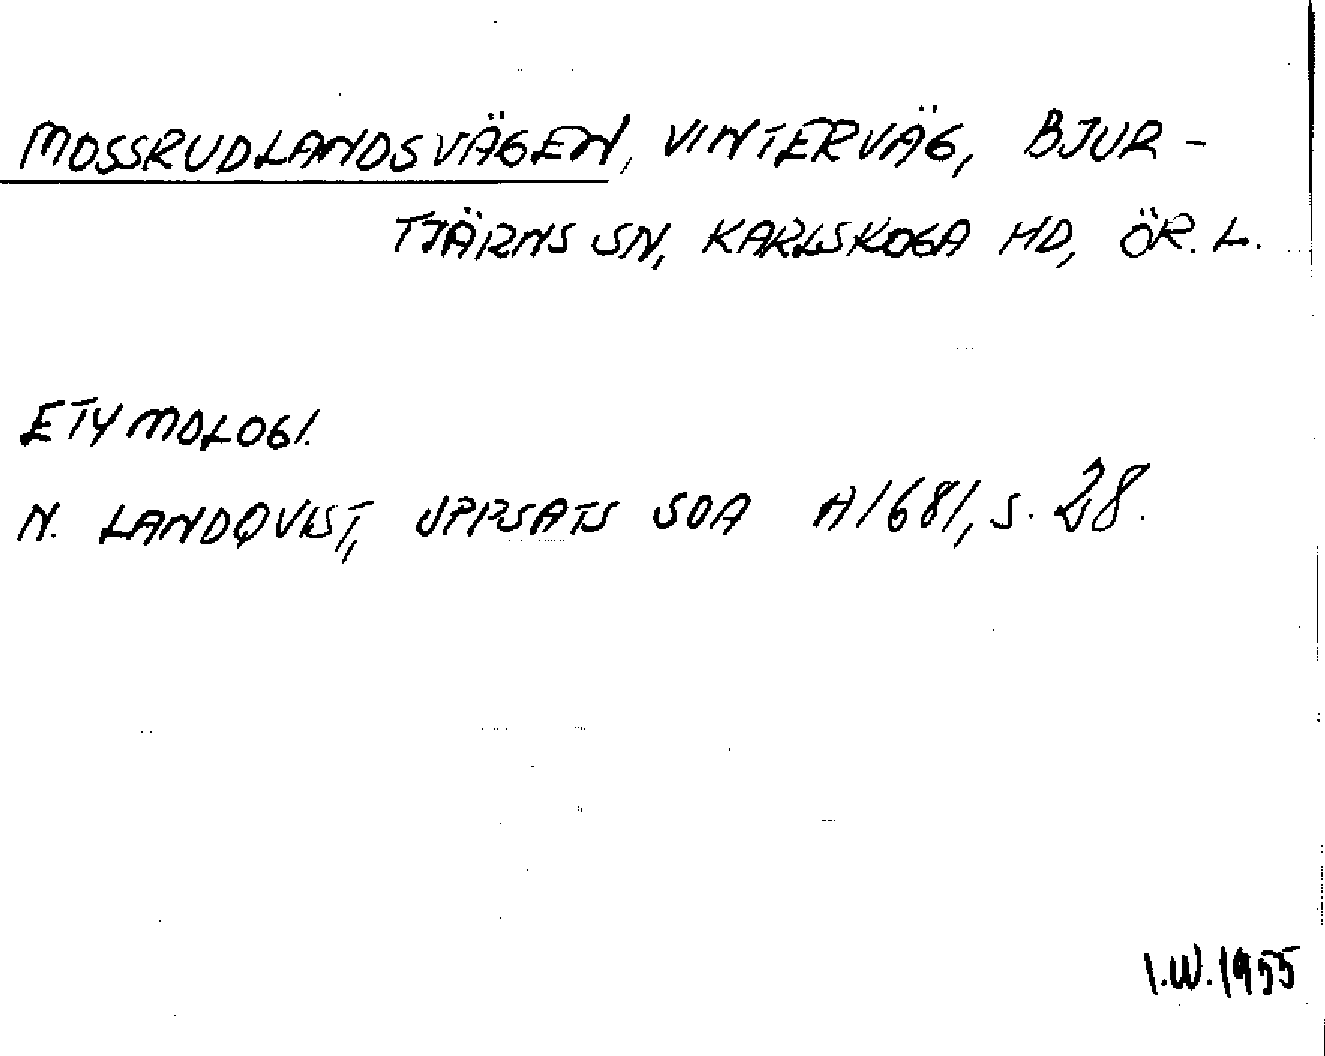 MOSSRUDLANDSVÄGEN, VINTERVÄG, BJUR-
TJÄRNS SN, KARLSKOGA HD, ÖR. L.
ETYMOLOGI.
N. LANDQVIST, UPPSATS SOA A1681, S. 28.
I.W. 1955